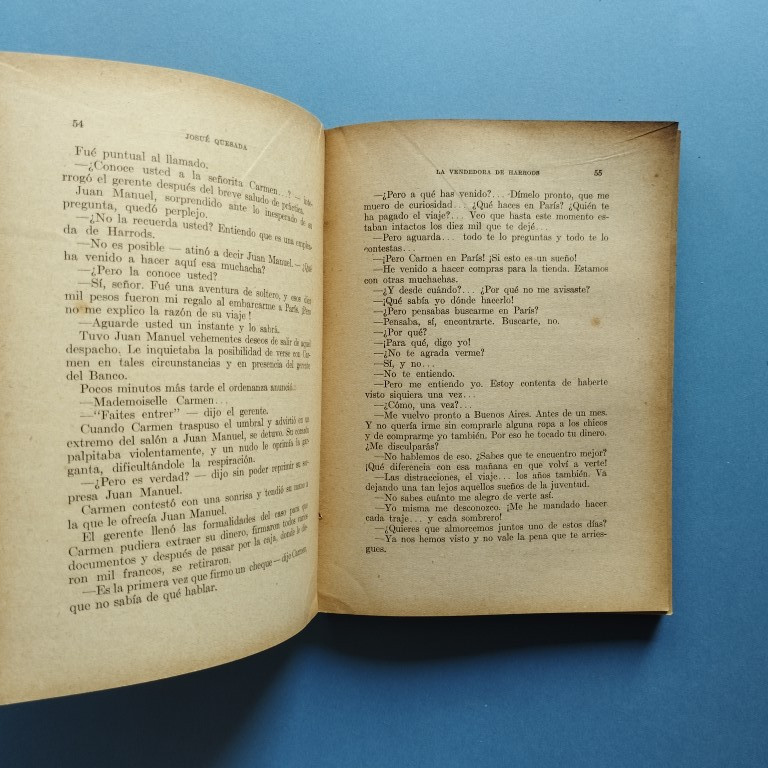 54
JOSUÉ QUESADA
Fué puntual al llamado.
—¿Conoce usted a la señorita Carmen...? — inte-
rrogó el gerente después del breve saludo de práctica.
Juan Manuel, sorprendido ante lo inesperado de su
pregunta, quedó perplejo.
—¿No la recuerda usted? Entiendo que es una emplea-
da de Harrods.
—No es posible — atinó a decir Juan Manuel. — ¿Qué
ha venido a hacer aquí esa muchacha?
—¿Pero la conoce usted?
—Sí, señor. Fué una aventura de soltero, y esos diez
mil pesos fueron mi regalo al embarcarme a París. ¡Pero
no me explico la razón de su viaje!
—Aguarde usted un instante y lo sabrá.
Tuvo Juan Manuel vehementes deseos de salir de aquel
despacho. Le inquietaba la posibilidad de verse con Car-
men en tales circunstancias y en presencia del gerente
del Banco.
Pocos minutos más tarde el ordenanza anunció:
—Mademoiselle Carmen...
—"Faites entrer" — dijo el gerente.
Cuando Carmen traspuso el umbral y advirtió en un
extremo del salón a Juan Manuel, se detuvo. Su corazón
palpitaba violentamente, y un nudo le oprimía la gar-
ganta, dificultándole la respiración.
—¿Pero es verdad? — dijo sin poder reprimir su sor-
presa Juan Manuel.
Carmen contestó con una sonrisa y tendió su mano a
la que le ofrecía Juan Manuel.
El gerente llenó las formalidades del caso para que
Carmen pudiera extraer su dinero, firmaron todos varios
documentos y después de pasar por la caja, donde le die-
ron mil francos, se retiraron.
—Es la primera vez que firmo un cheque — dijo Carmen,
que no sabía de qué hablar.
LA VENDEDORA DE HARRODS
55
—¿Pero a qué has venido?... Dímelo pronto, que me
muero de curiosidad... ¿Qué haces en París? ¿Quién te
ha pagado el viaje?... Veo que hasta este momento es-
taban intactos los diez mil que te dejé...
—Pero aguarda... todo te lo preguntas y todo te lo
contestas...
—¡Pero Carmen en París! ¡Si esto es un sueño!
—He venido a hacer compras para la tienda. Estamos
con otras muchachas.
—¿Y desde cuándo?... ¿Por qué no me avisaste?
—¡Qué sabía yo dónde hacerlo!
—¿Pero pensabas buscarme en París?
—Pensaba, sí, encontrarte. Buscarte, no.
—¿Por qué?
—¡Para qué, digo yo!
—¿No te agrada verme?
—Sí, y no...
—No te entiendo.
—Pero me entiendo yo. Estoy contenta de haberte
visto siquiera una vez...
—¿Cómo, una vez?...
—Me vuelvo pronto a Buenos Aires. Antes de un mes.
Y no quería irme sin comprarle alguna ropa a los chicos
y de comprarme yo también. Por eso he tocado tu dinero.
¿Me disculparás?
—No hablemos de eso. ¿Sabes que te encuentro mejor?
¡Qué diferencia con esa mañana en que volví a verte!
—Las distracciones, el viaje... los años también. Va
dejando una tan lejos aquellos sueños de la juventud.
—No sabes cuánto me alegro de verte así.
—Yo misma me desconozco. ¡Me he mandado hacer
cada traje... y cada sombrero!
—¿Quieres que almorcemos juntos uno de estos días?
—Ya nos hemos visto y no vale la pena que te arries-
gues.